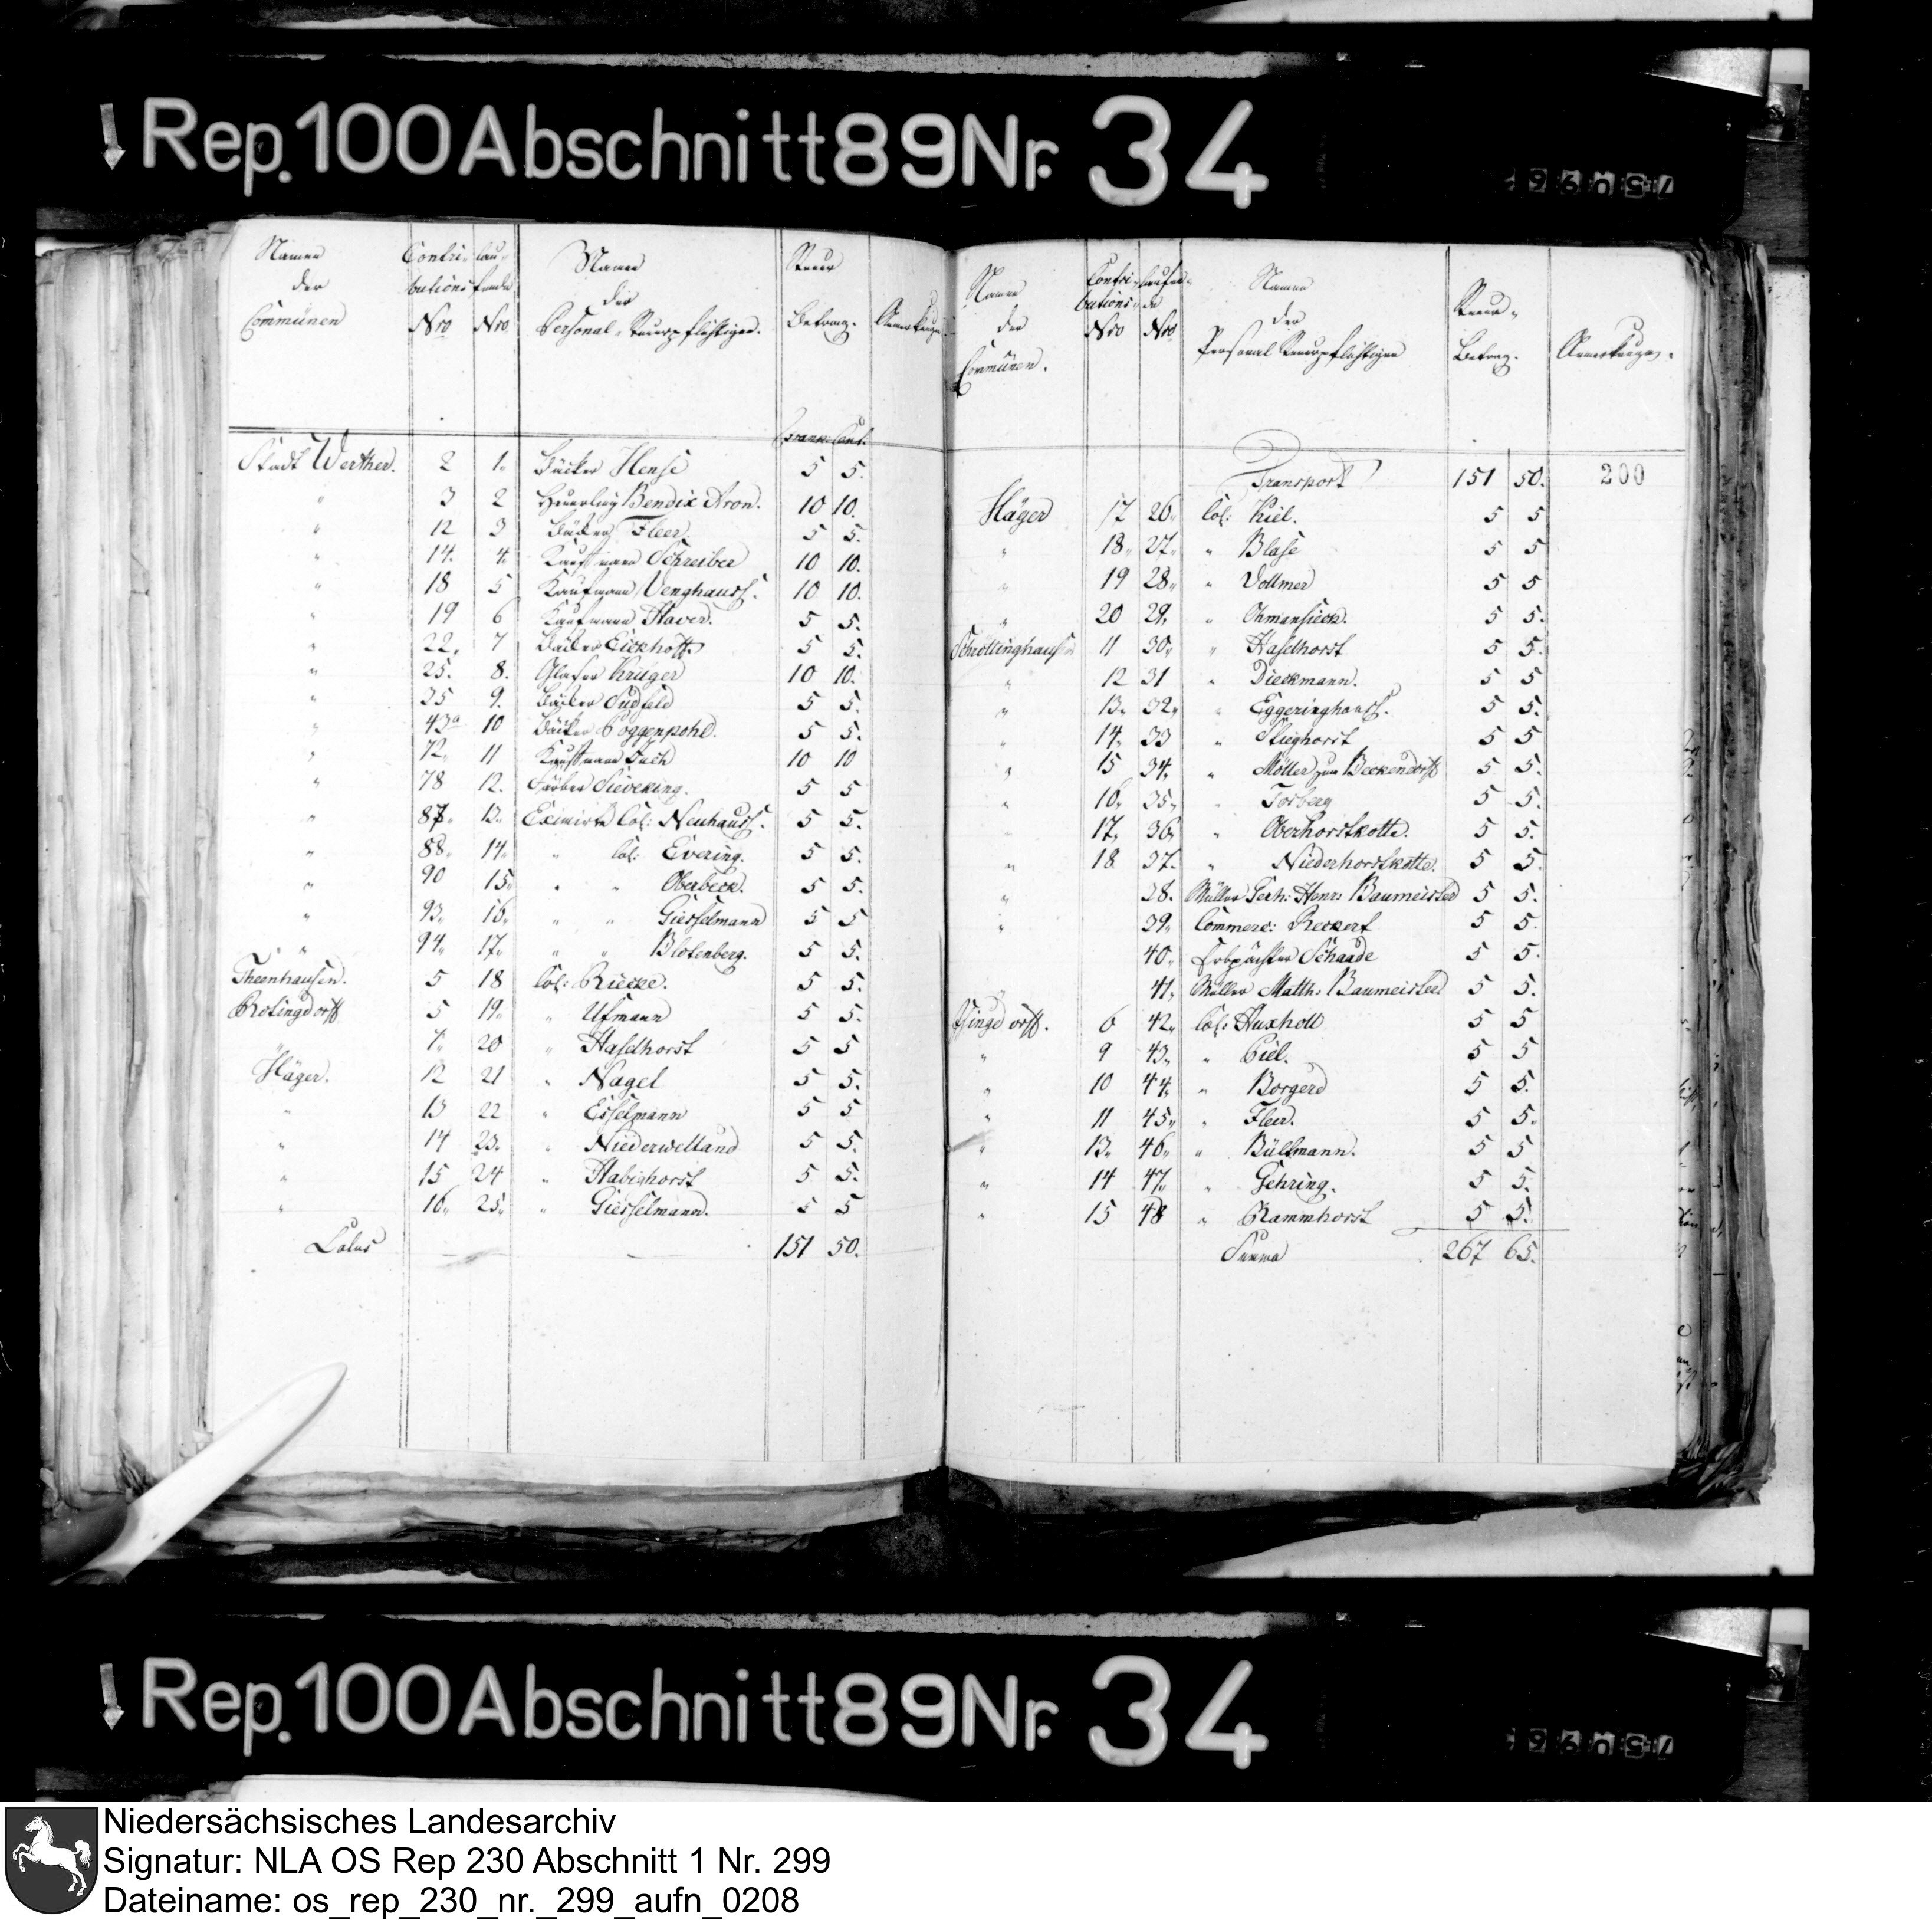 Rep. 100 Abschnitt 89 Nr. 34
Namen der Communen | Contributions Nro | laufende Nro | Namen der Personal-Steuerpflichtigen. | Steuer Betrag. | Anmerkungen
Franc Cent.
Stadt Werther. 2 1. Bäcker Hense 5 5.
" 3 2 Heuerling Bendix Aron. 10 10.
" 12 3 Bäcker Fleer. 5 5.
" 14. 4. Kaufmann Schreiber 10 10.
" 18 5 Kaufmann Venghauss. 10 10.
" 19 6 Kaufmann Haver. 5 5.
" 22. 7 Bäcker Eickhoff 5 5.
" 25. 8. Glaser Krüger 10 10.
" 25 9. Bäcker Sudfeld 5 5.
" 43a 10 Bäcker Poggenpohl. 5 5.
" 72. 11 Kaufmann 10 10
" 78 12. Färber Sieveking. 5 5
" 87. 13. Eximirte Col: Neuhauss. 5 5.
" 88. 14. " Col: Evering. 5 5.
" 90 15. " " Oberbeck. 5 5.
" 93. 16. " " Giesselmann 5 5
" 94. 17. " " Blotenberg. 5 5.
Theenhausen. 5 18 Col: Riecke. 5 5.
Rotingdorff 5 19. " Ufmann 5 5.
" 7. 20 " Haselhorst 5 5
Häger. 12 21 " Nagel 5 5.
" 13 22 " Esselmann 5 5
" 14 23. " Niederwelland 5 5.
" 15 24 " Habighorst 5 5.
" 16. 25. " Giesselmann. 5 5
Latus 151 50.
Namen der Communen. | Contributions Nro | laufende Nro | Namen der Personal Steuerpflichtigen | Steuer-Betrag. | Anmerkungen.
Transport 151 50. 200
Häger 17 26. Col: Kiel. 5 5
" 18. 27. " Blase 5 5
" 19 28. " Vollmer 5 5
" 20 29. " Ohmansieck. 5 5.
Schröttinghausen 11 30. " Haselhorst 5 5.
" 12 31 " Dieckmann. 5 5
" 13. 32. " Eggeringhauss. 5 5.
" 14. 33 " Stieghorst 5 5
" 15 34. " Möller zum Beckendorff 5 5.
" 16. 35. " Torberg 5 5.
" 17. 36. " Oberhorstkotte. 5 5.
" 18 37. " Niederhorstkotte. 5 5.
" 38. Müller Gerh: Henr: Baumeister 5 5.
" 39. Commerc: Reckert 5 5.
40. Erbpächter Schaade 5 5.
" 41. Müller Matth: Baumeister 5 5.
Isingdorff. 6 42. Col: Huxholl 5 5
" 9 43. " Piel. 5 5
" 10 44. " Borgerd 5 5.
" 11 45. " Fleer. 5 5.
" 13. 46. " Bültmann. 5 5
" 14 47. " Gehring. 5 5.
" 15 48 " Rammhorst 5 5.
Summa 267 65.
Rep. 100 Abschnitt 89 Nr. 34
Niedersächsisches Landesarchiv
Signatur: NLA OS Rep 230 Abschnitt 1 Nr. 299
Dateiname: os_rep_230_nr._299_aufn_0208